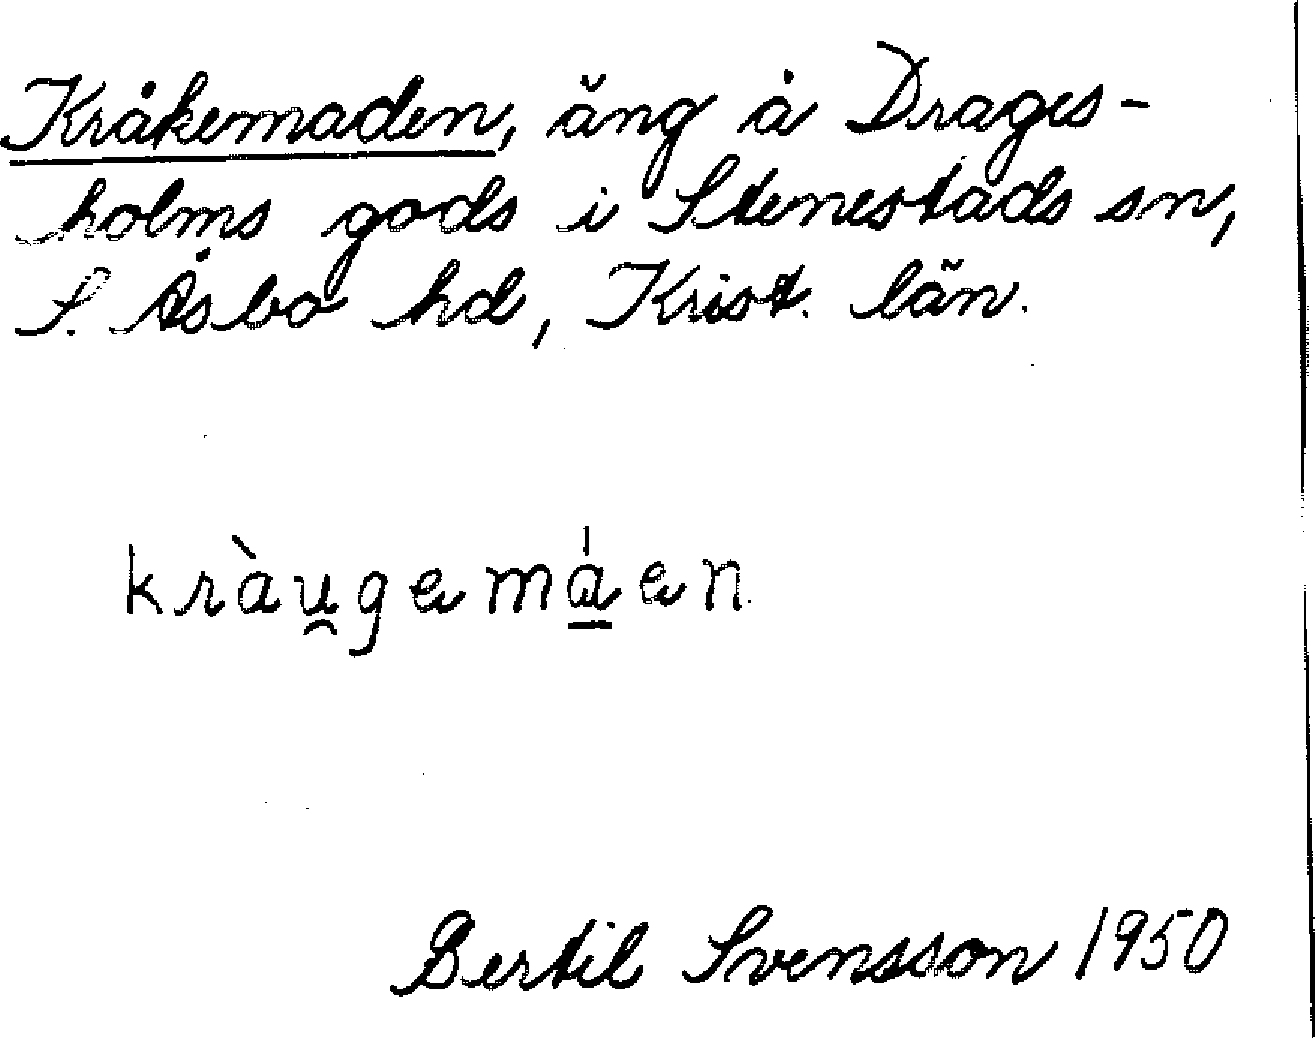 Kråkemaden, äng å Drages-
holms gods i Stenestads sn,
S. Åsbo hd, Krist. län.
kràu̯gemá̱en
Bertil Svensson 1950